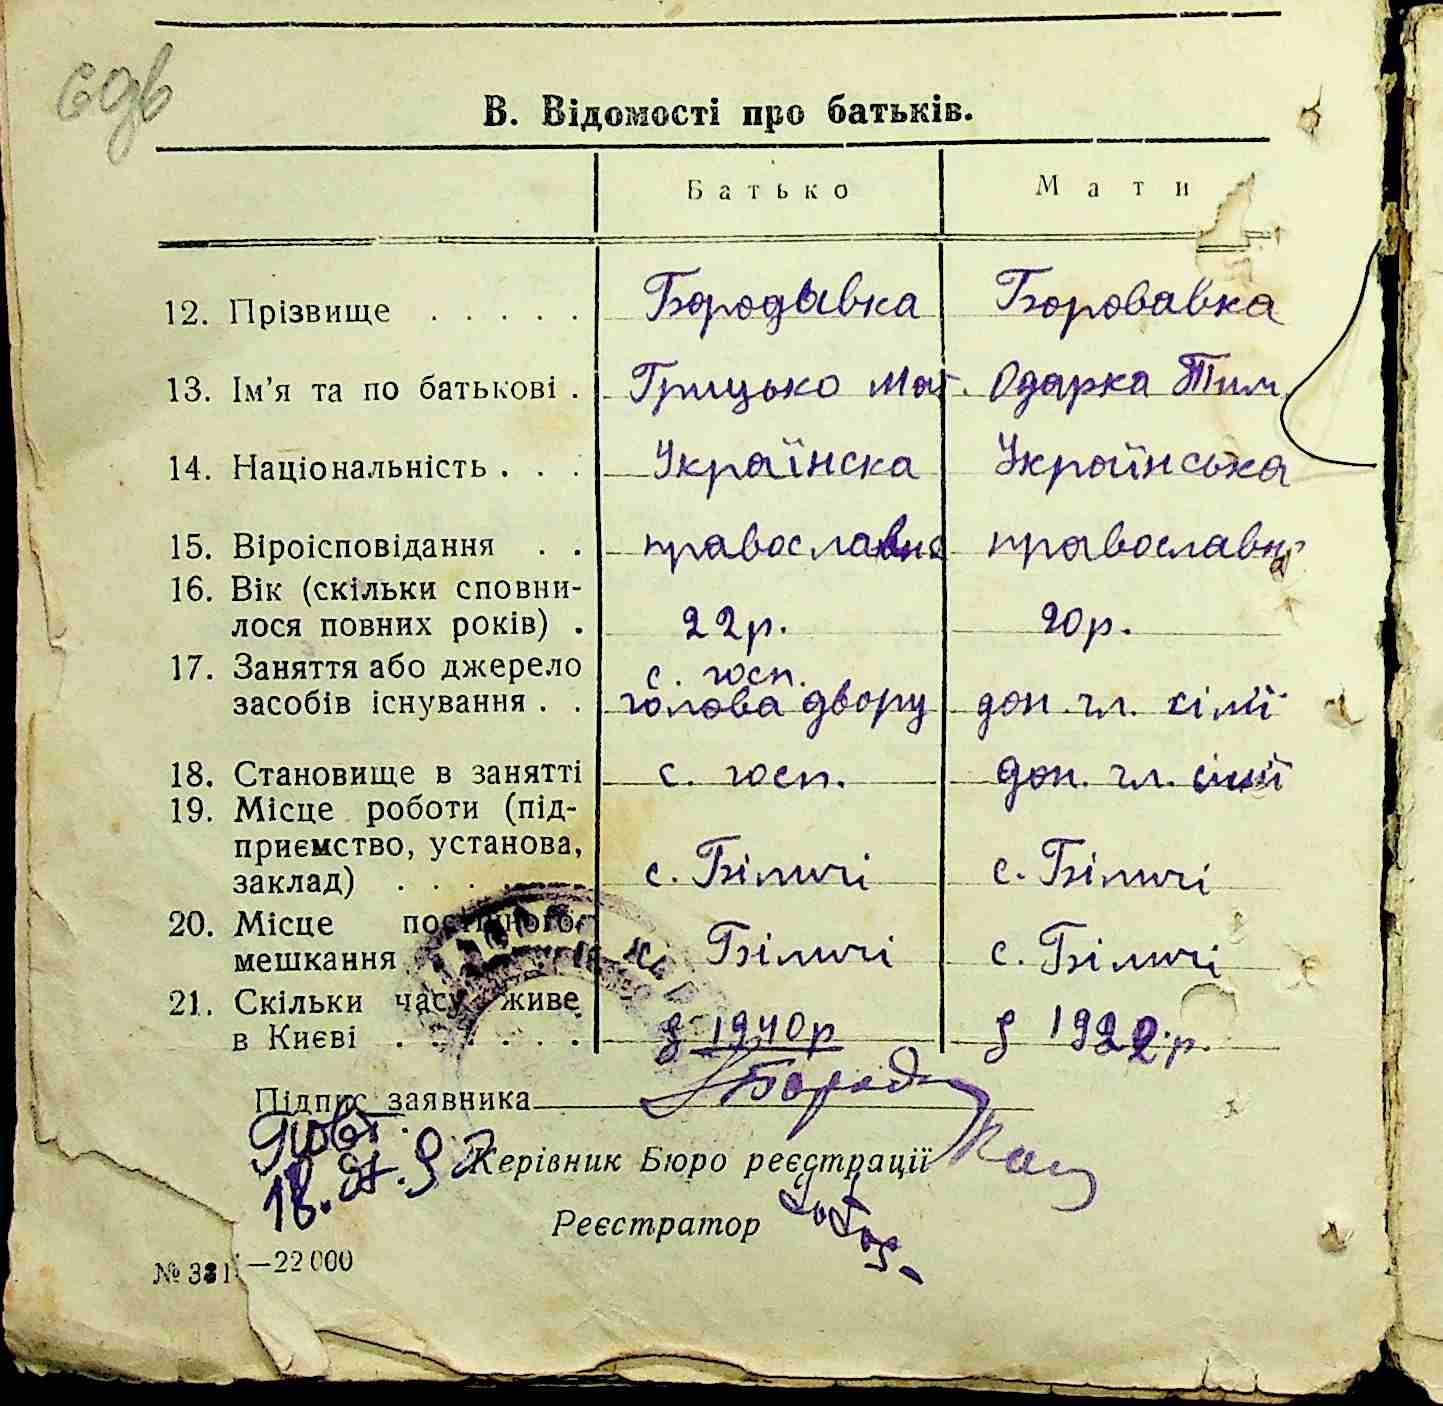 В. Відомості про батьків.
Батько Мати
12. Прізвище . . . . . Бородавка Боровавка
13. Ім'я та по батькові . Грицько Мат. Одарка Тим.
14. Національність . . . Українска Українська
15. Віроісповідання . . православна православна
16. Вік (скільки сповни-
лося повних років) . 22р. 20р.
17. Заняття або джерело с. госп.
засобів існування . . голова двору доп. чл. сімїї
18. Становище в занятті с. госп. доп. чл. сімїї
19. Місце роботи (під-
приємство, установа,
заклад) . . . . . с. Біличі с. Біличі
20. Місце постійного
мешкання с. Біличі с. Біличі
21. Скільки часу живе
в Києві . . . . . . З 1940р З 1922.р.
Підпис заявника Бород
Керівник Бюро реєстрації
Реєстратор
№ 381—22 000